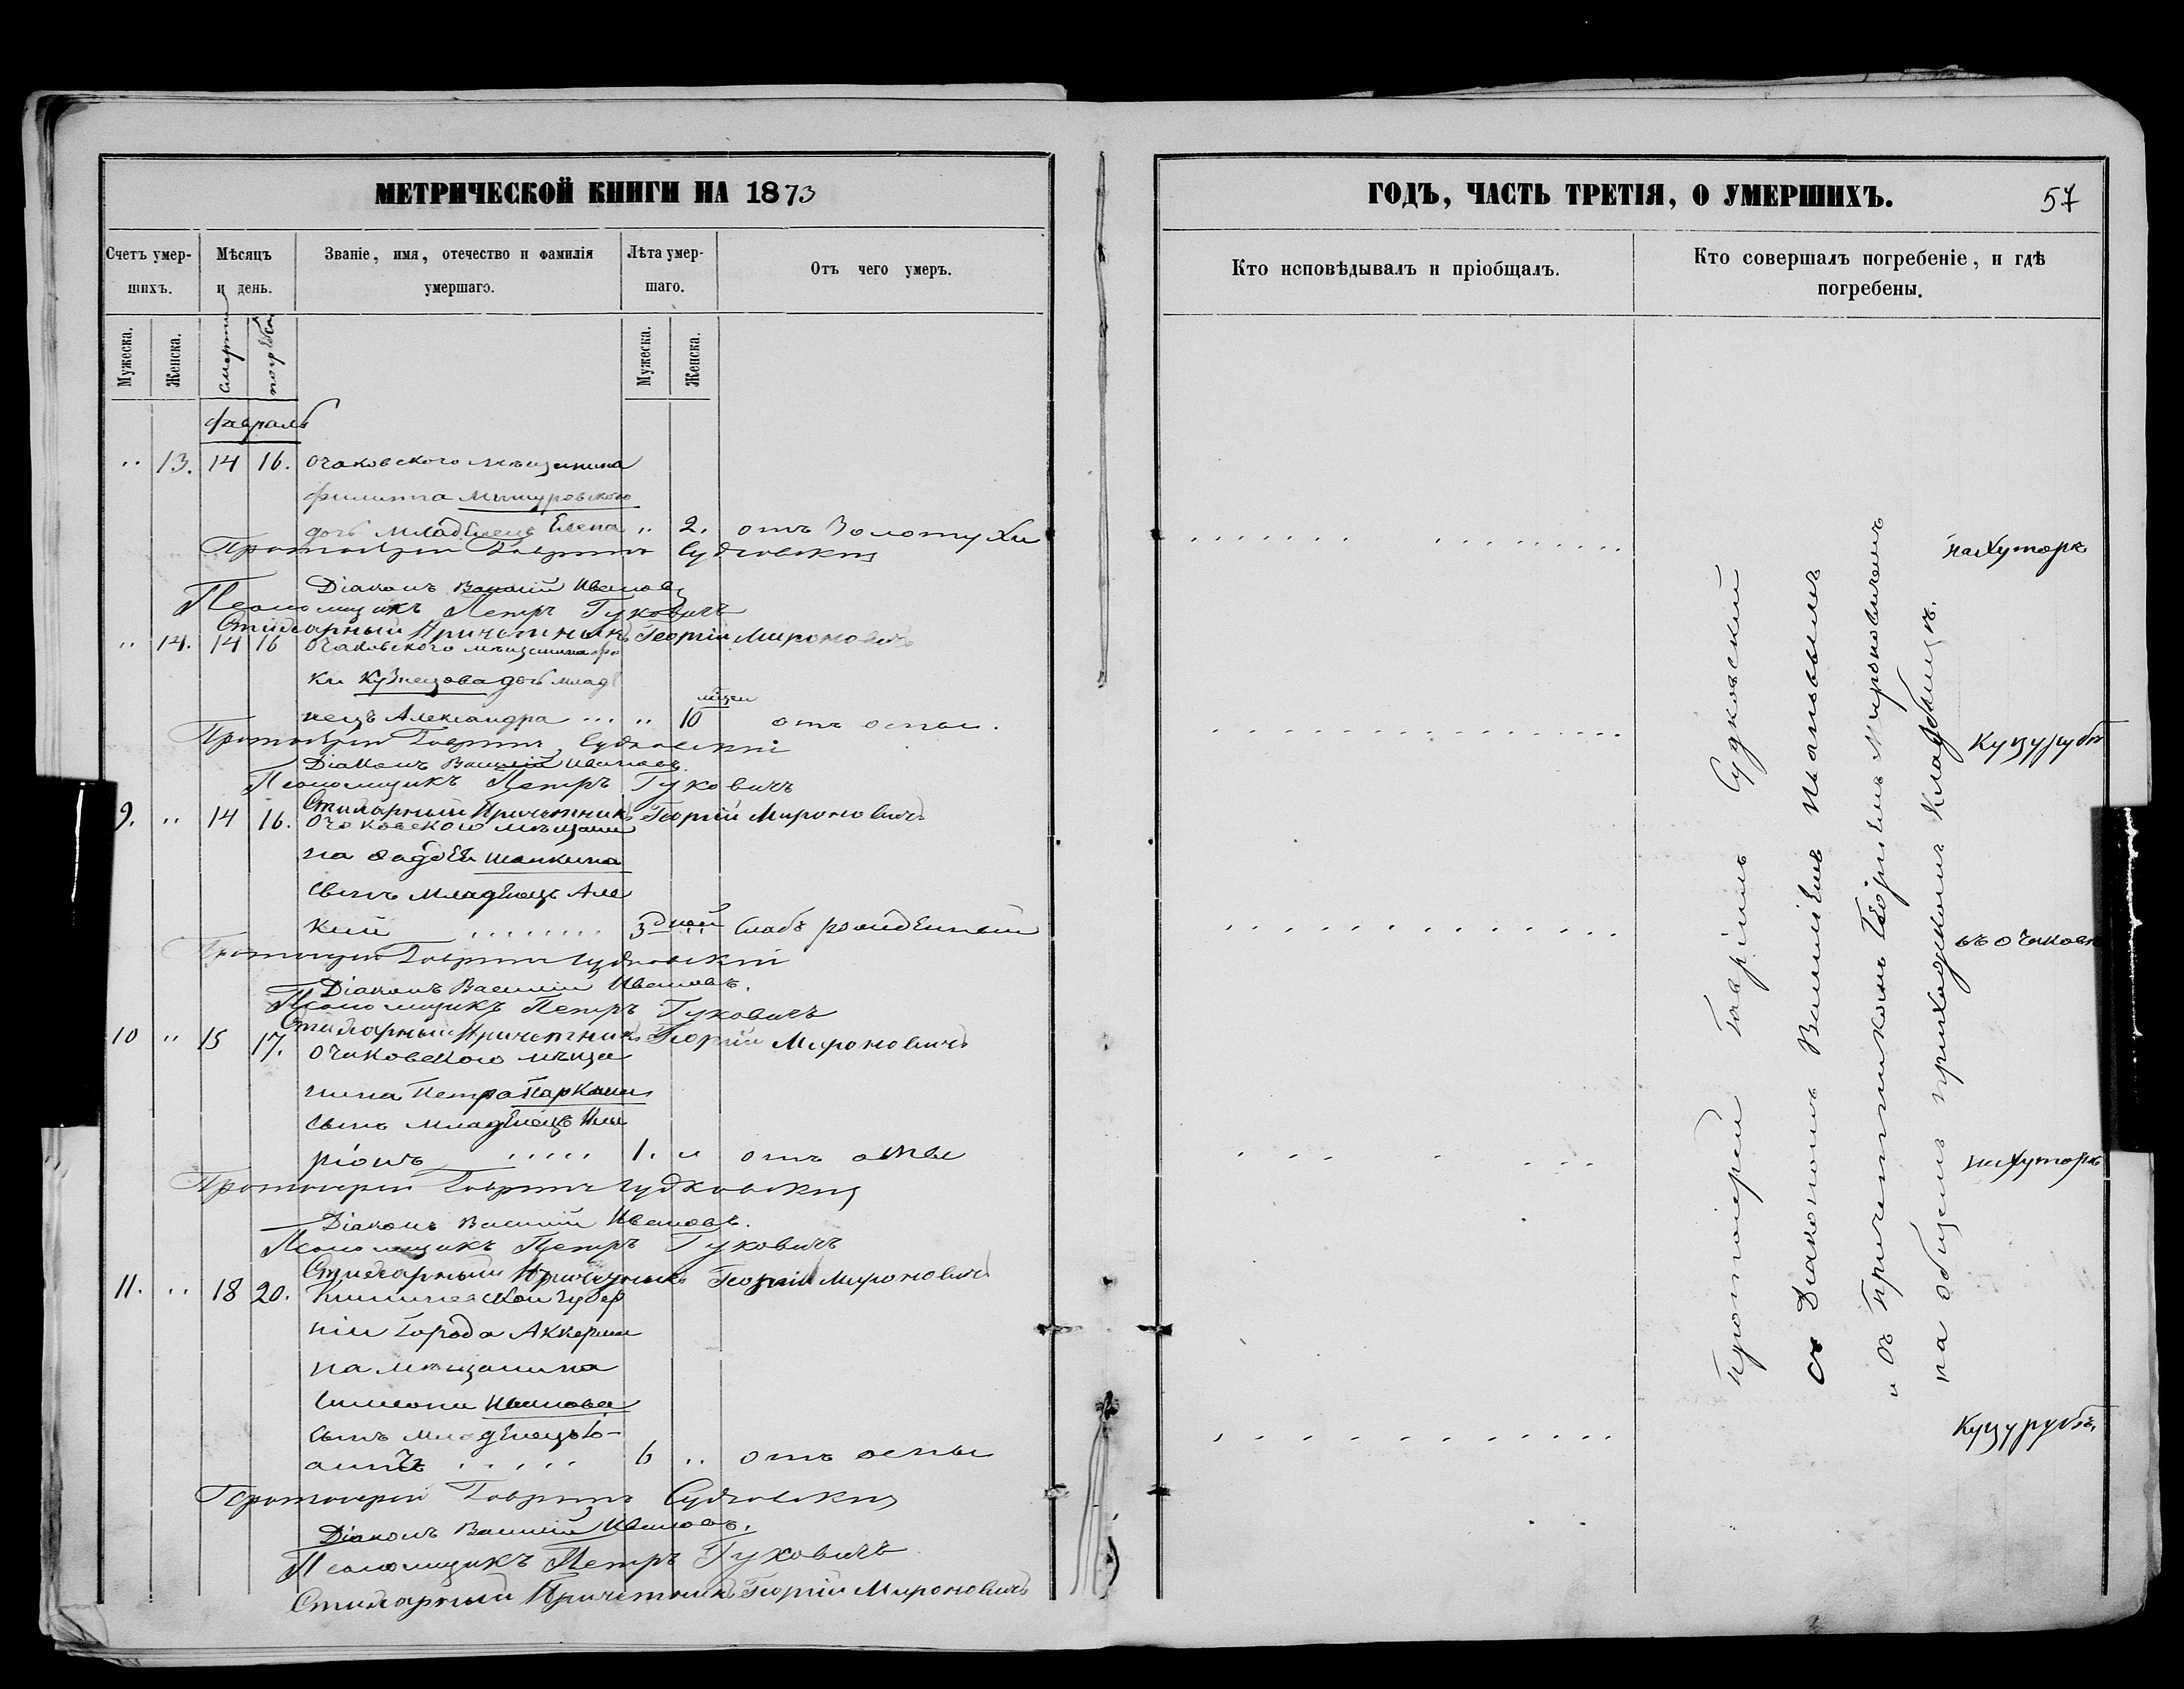 МЕТРИЧЕСКОЙ КНИГИ НА 1873
Счетъ умершихъ.
Мѣсяцъ и день.
Званіе, имя, отечество и фамилія умершаго.
Лѣта умершаго.
Отъ чего умеръ.
Мужеска.
Женска.
смерти
погреб.
Мужеска.
Женска.
Февраль
" 13. 14 16. Очаковского мѣщанина
Филиппа
дочь младенецъ Елена " 2. отъ Золотухи
Протоіерей Гавріилъ Судковскій
Діаконъ Василій Ивановъ
Псаломщикъ Петръ Гуковичъ
Стихарный Причетникъ Георгій Мироновичъ
" 14. 14 16 Очаковского мѣщанина
ки Кузнецова дочь младе
мѣсяц
нецъ Александра ... " 10 отъ оспы.
Протоіерей Гавріилъ Судковскій
Діаконъ Василій Ивановъ.
Псаломщикъ Петръ Гуковичъ
Стихарный Причетникъ Георгій Мироновичъ
9. " 14 16. Очаковского мѣщани
на Фадѣя Шапкина
сынъ младенецъ Але
ксій ........ 3 дней " слабъ рожденный
Протоіерей Гавріилъ Судковскій
Діаконъ Василій Ивановъ.
Псаломщикъ Петръ Гуковичъ
Стихарный Причетникъ Георгій Мироновичъ
10 " 15 17. Очаковского мѣща
нина Петра
сынъ младенецъ Ила
ріонъ ..... 1. " отъ оспы
Протоіерей Гавріилъ Судковскій
Діаконъ Василій Ивановъ.
Псаломщикъ Петръ Гуковичъ
Стихарный Причетникъ Георгій Мироновичъ
11. " 18 20. Кишиневской губер
ніи Города Аккерма
на мѣщанина
Симеона Иванова
сынъ младенецъ Іо-
аннъ ..... 6 " отъ оспы
Протоіерей Гавріилъ Судковскій
Діаконъ Василій Ивановъ.
Псаломщикъ Петръ Гуковичъ
Стихарный Причетникъ Георгій Мироновичъ
ГОДЪ, ЧАСТЬ ТРЕТІЯ, О УМЕРШИХЪ.
57
Кто исповѣдывалъ и пріобщалъ.
Кто совершалъ погребеніе, и гдѣ погребены.
Протоіерей Гавріилъ Судковскій
съ Діакономъ Василіемъ Ивановымъ
и съ Причетникомъ Георгіемъ Мироновичемъ
на общемъ приходскомъ Кладбищѣ.
на Хуторѣ
Куцурубѣ
въ Очаковѣ
на Хуторѣ
Куцурубѣ.